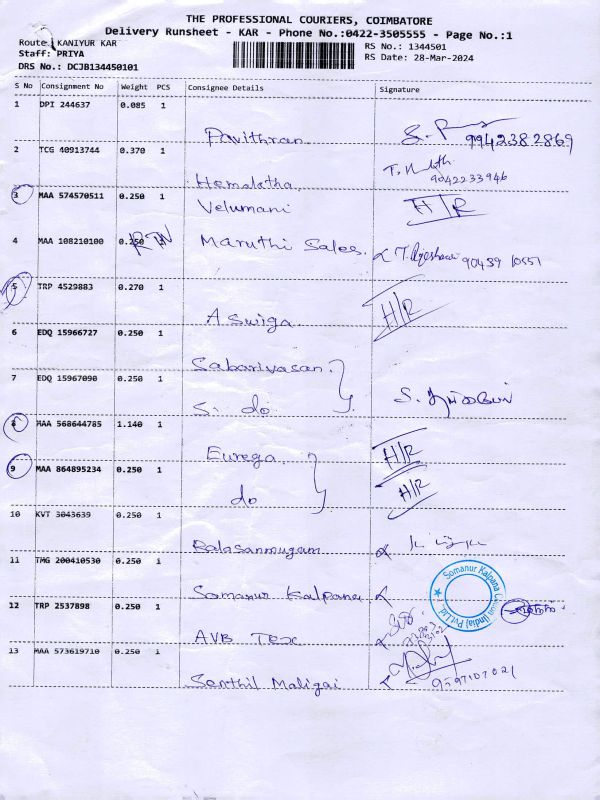 THE PROFESSIONAL COURIERS, COIMBATORE
Delivery Runsheet - KAR - Phone No.:0422-3505555 - Page No.:1
Route: KANIYUR KAR
Staff: PRIYA
DRS No.: DCJB134450101
RS No.: 1344501
RS Date: 28-Mar-2024
S No Consignment No Weight PCS Consignee Details Signature
1 DPI 244637 0.085 1
Pavithran 9942382869
2 TCG 40913744 0.370 1
Hemalatha 9042233946
3 MAA 574570511 0.250 1
Velumani H/R
4 MAA 108210100 0.250 1
Maruthi Sales 90439 10557
5 TRP 4529883 0.270 1
Aswiga H/R
6 EDQ 15966727 0.250 1
Sabarivasan
7 EDQ 15967090 0.250 1
S. do
8 MAA 568644785 1.140 1
Eurega H/R
9 MAA 864895234 0.250 1
do H/R
10 KVT 3043639 0.250 1
Balasanmugam
11 TMG 200410530 0.250 1
Somanur Kalpana
Somanur Kalpana (India) Pvt Ltd.
12 TRP 2537898 0.250 1
AVB Tex
13 MAA 573619710 0.250 1
Senthil Maligai 9597107021